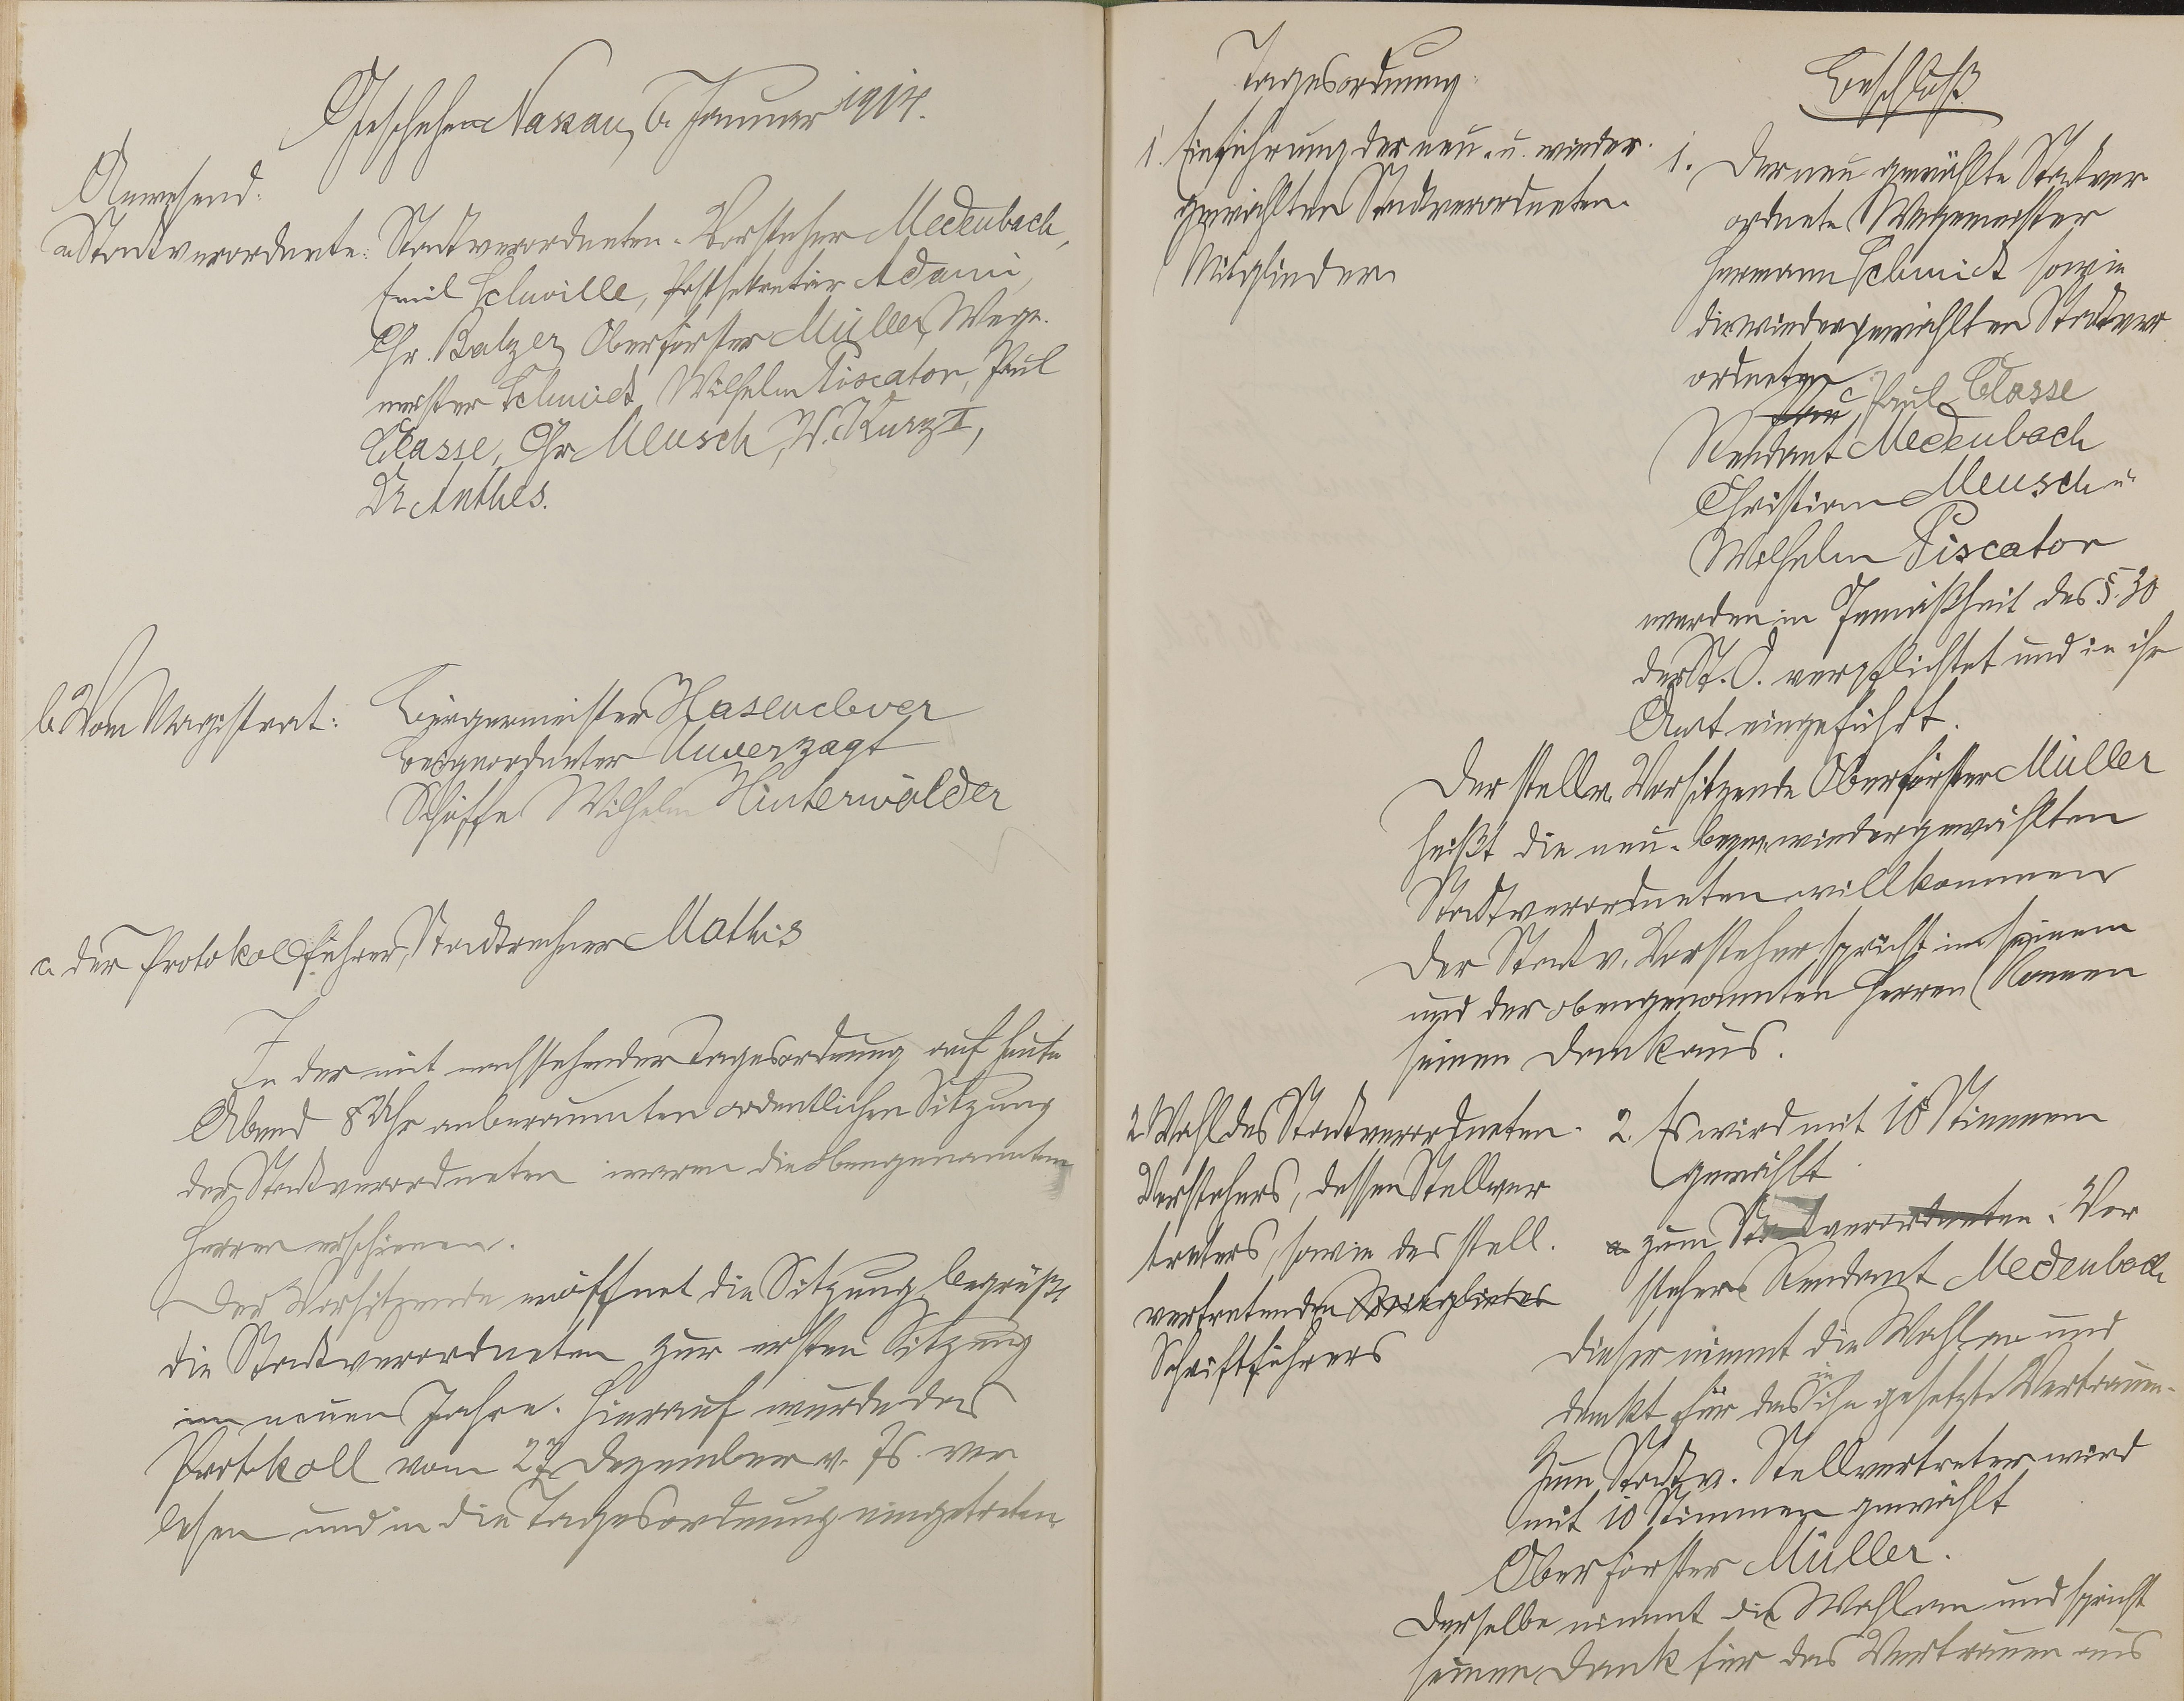 Geschehen Nassau, 6. Januar 1914.
Anwesend:
a Stadtverordnete: Stadtverordneten-Vorsteher Medenbach,
Emil Schwille, Postsekretär Adami,
Chr. Balzer, Oberförster Müller, Wege-
meister Schmidt, Wilhelm Piscator, Paul
Classe, Chr. Meusch, W. Kurz II,
Dr. Anthes.
b. Vom Magistrat: Bürgermeister Hasenclever
Beigeordneter Unverzagt
Schöffe Wilhelm Hinterwälder
c. der Protokollführer, Stadtrechner Mathis
In der mit nachstehender Tagesordnung auf heute
Abend 8 Uhr anberaumten ordentlichen Sitzung
der Stadtverordneten waren die Obengenannten
Herren erschienen.
Der Vorsitzende eröffnet die Sitzung, begrüßt
die Stadtverordneten zur ersten Sitzung
im neuen Jahre. Hierauf wurde das
Protokoll vom 27. Dezember v. Js. ver
lesen und in die Tagesordnung eingetreten.
Tagesordnung:
1. Einführung der neu- u. wieder-
gewählten Stadtverordneten-
Mitglieder
2. Wahl des Stadtverordneten-
Vorstehers, dessen Stellver
treters, sowie des stell-
vertretenden
Schriftführers
Beschluß
1. Der neu gewählte Stadtver
ordnete Wegemeister
Hermann Schmidt sowie
die wiedergewählten Stadtver
ordneten
Paul Classe
Rendant Medenbach
Christian Meusch u.
Wilhelm Piscator
werden in Gemäßheit des §. 30
der St. O. verpflichtet und in ihr
Amt eingeführt.
Der stellv. Vorsitzende Oberförster Müller
heißt die neu- bezw. wiedergewählten
Stadtverordneten willkommen
Der Stadtv. Vorsteher spricht in seinem
und der obengenannten Herren Namen
seinen Dank aus.
2. Es wird mit 10 Stimmen
gewählt
a zum Stadtverordneten-Vor
steher Rendant Medenbach
dieser nimmt die Wahl an und
dankt für das in ihn gesetzte Vertrauen.
Zum Stadtv. Stellvertreter wird
mit 10 Stimmen gewählt
Oberförster Müller.
Derselbe nimmt die Wahl an und spricht
seinen Dank für das Vertrauen aus